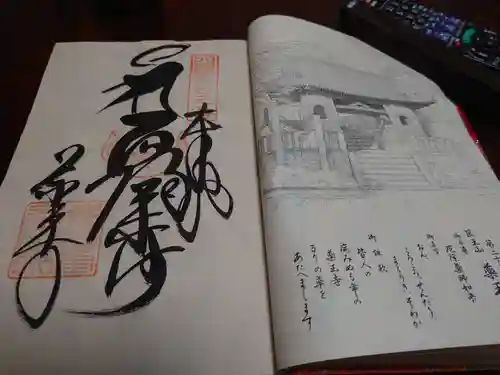 第二十
薬王
医王山
御本尊
厄除薬師如来
御真言
おん
ころころせんだり
まとうぎそわか
御詠歌
皆人の
病みぬる年の
薬王寺
るりの薬を
あたへまします
奉納
薬王寺